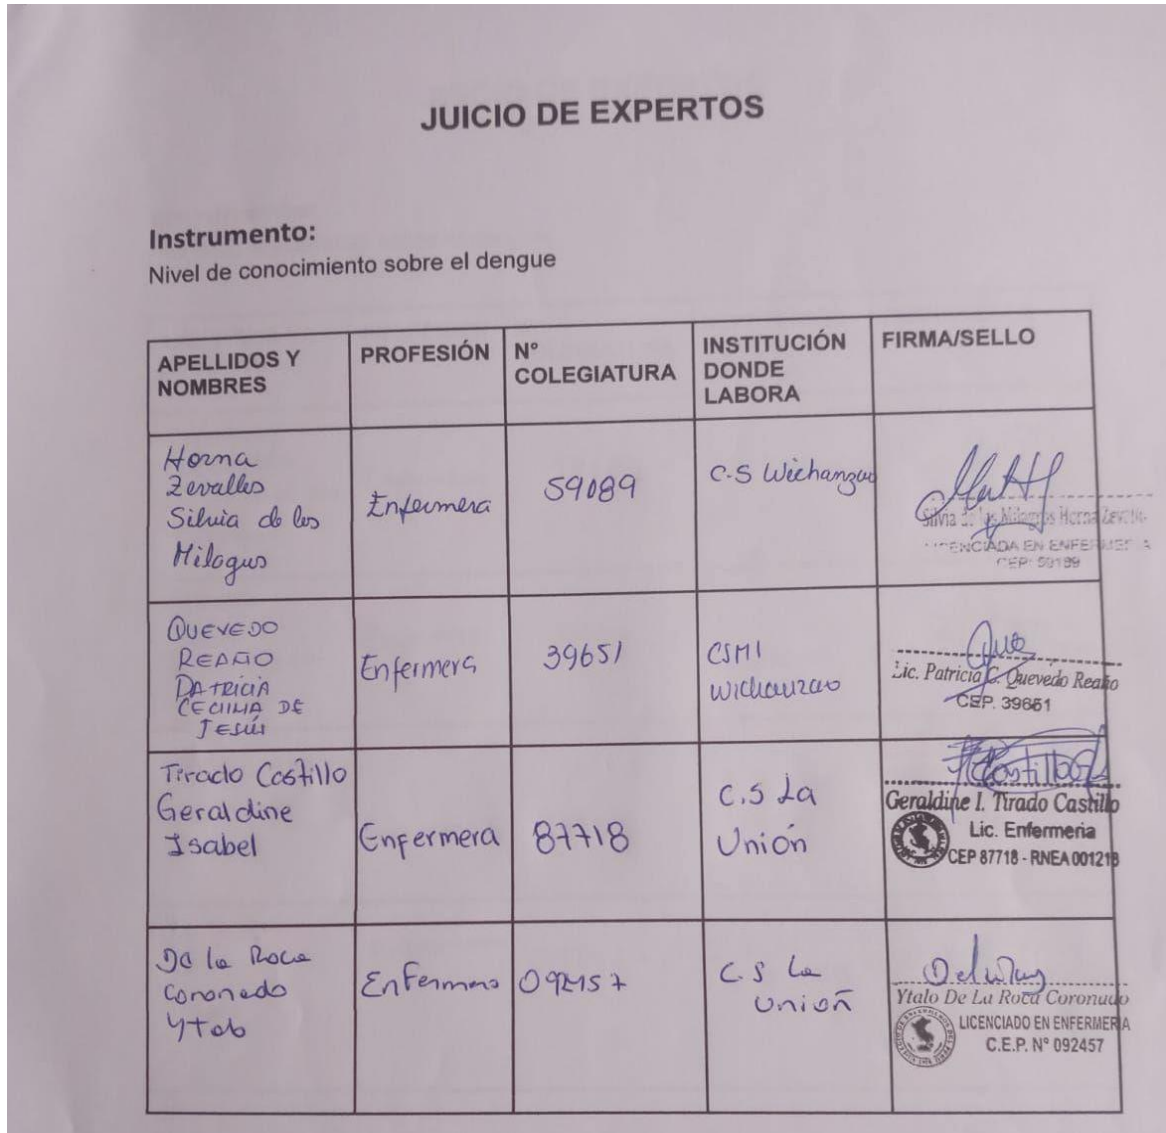 JUICIO DE EXPERTOS
Instrumento:
Nivel de conocimiento sobre el dengue
APELLIDOS Y
NOMBRES
PROFESIÓN
N°
COLEGIATURA
INSTITUCIÓN
DONDE
LABORA
FIRMA/SELLO
Horna
Zevalles
Silvia de los
Milagros
Enfermera
59089
C.S Wichanzao
Silvia de los Milagros Horna
LICENCIADA EN ENFERMERIA
CEP:
QUEVEDO
REAÑO
PATRICIA
CECILIA DE
JESÚS
Enfermera
39651
CSMI
Wichanzao
Lic. Patricia C. Quevedo Reaño
CEP. 39651
Tirado Castillo
Geraldine
Isabel
Enfermera
87718
C.S La
Unión
Geraldine I. Tirado Castillo
Lic. Enfermeria
CEP 87718 - RNEA 001218
De la Roca
Coronado
Ytalo
Enfermero
092457
C.S La
Unión
Ytalo De La Roca Coronado
LICENCIADO EN ENFERMERIA
C.E.P. N° 092457